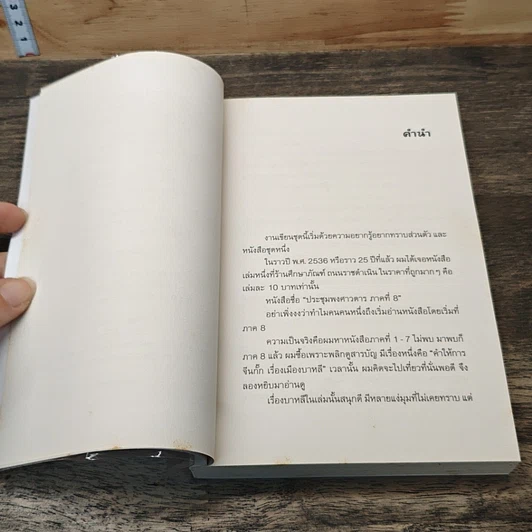 3
2
1
คำนำ
งานเขียนชุดนี้เริ่มด้วยความอยากรู้อยากทราบส่วนตัว และ
หนังสือชุดหนึ่ง
ในราวปี พ.ศ. 2536 หรือราว 25 ปีที่แล้ว ผมได้เจอหนังสือ
เล่มหนึ่งที่ร้านศึกษาภัณฑ์ ถนนราชดำเนิน ในราคาที่ถูกมากๆ คือ
เล่มละ 10 บาทเท่านั้น
หนังสือชื่อ "ประชุมพงศาวดาร ภาคที่ 8"
อย่าเพิ่งงงว่าทำไมคนคนหนึ่งถึงเริ่มอ่านหนังสือโดยเริ่มที่
ภาค 8
ความเป็นจริงคือผมหาหนังสือภาคที่ 1 - 7 ไม่พบ มาพบก็
ภาค 8 แล้ว ผมซื้อเพราะพลิกดูสารบัญ มีเรื่องหนึ่งคือ "คำให้การ
จีนกั๊ก เรื่องเมืองบาหลี" เวลานั้น ผมคิดจะไปเที่ยวที่นั่นพอดี จึง
ลองหยิบมาอ่านดู
เรื่องบาหลีในเล่มนั้นสนุกดี มีหลายแง่มุมที่ไม่เคยทราบ แต่